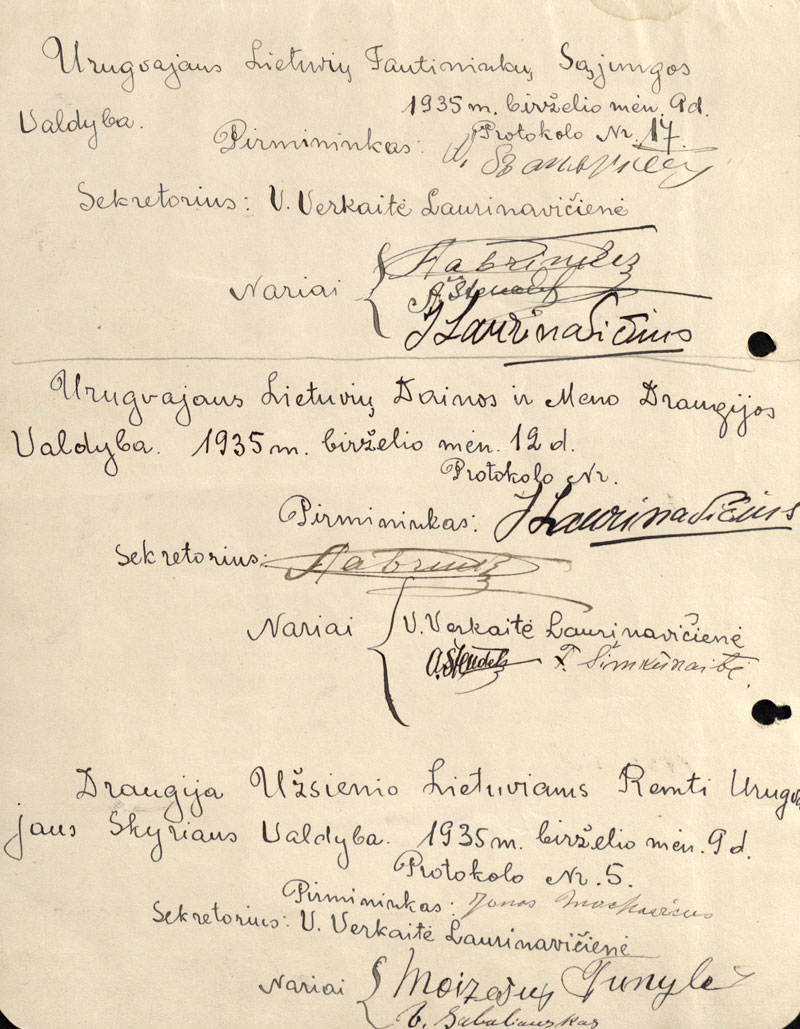 Urugvajaus Lietuvių Tautininkų Sąjungos
1935 m. birželio mėn. 9 d.
Valdyba.
Protokolo Nr. 17.
Pirmininkas:
Sekretorius: V. Verkaitė Laurinavičienė
Nariai
J Laurinavičius
Urugvajaus Lietuvių Dainos ir Meno Draugijos
Valdyba. 1935 m. birželio mėn. 12 d.
Protokolo Nr.
Pirmininkas: J Laurinavičius
Sekretorius:
Nariai V. Verkaitė Laurinavičienė
A. Stendelis F. Šimkūnaitė
Draugija Užsienio Lietuviams Remti Urugva
jaus Skyriaus Valdyba. 1935 m. birželio mėn. 9 d.
Protokolo Nr. 5.
Pirmininkas: Jonas Mackevičius
Sekretorius: V. Verkaitė Laurinavičienė
Nariai